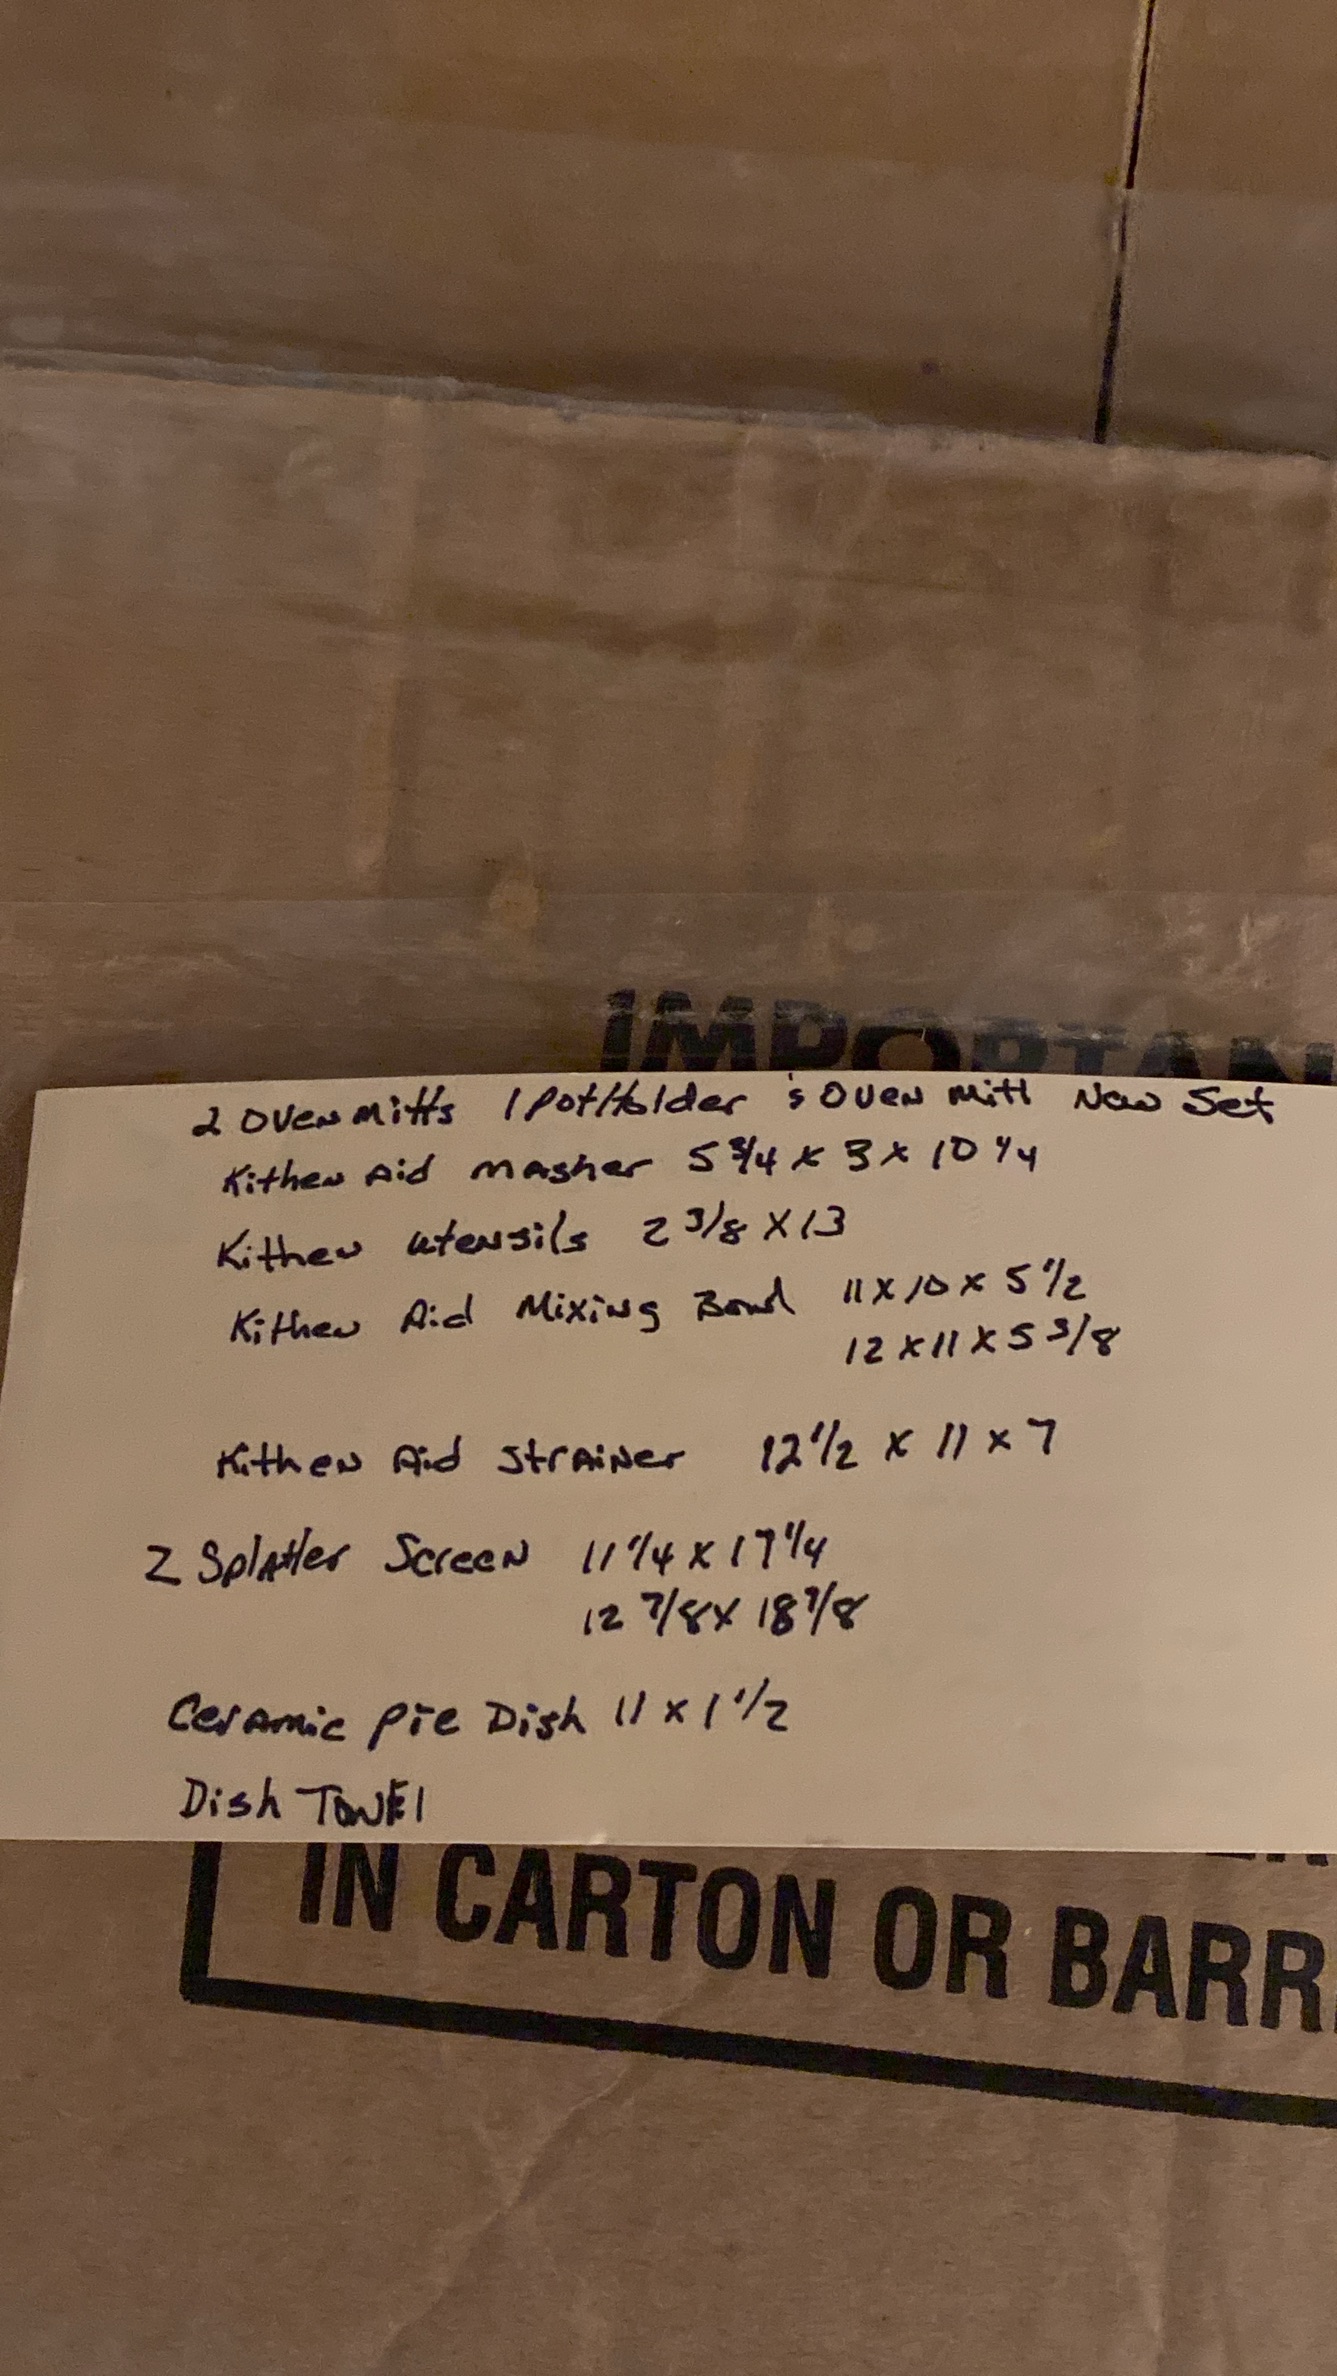 IMPORTAN
2 Oven Mitts 1 PotHolder & Oven Mitt New Set
Kithen Aid Masher 5 3/4 x 3 x 10 1/4
Kithen utensils 2 3/8 x 13
Kithen Aid Mixing Bowl 11 x 10 x 5 1/2
12 x 11 x 5 3/8
Kithen Aid Strainer 12 1/2 x 11 x 7
2 Splatter Screen 11 1/4 x 17 1/4
12 7/8 x 18 7/8
Ceramic Pie Dish 11 x 1 1/2
Dish Towel
IN CARTON OR BARR